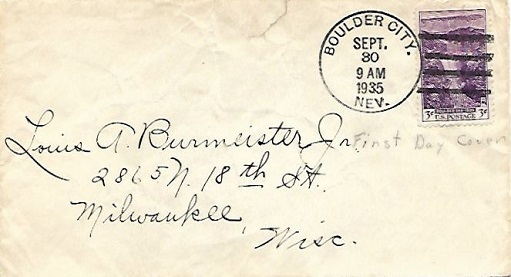 BOULDER CITY.
SEPT.
30
9 AM
1935
NEV.
3¢ 3¢
U.S. POSTAGE
First Day Cover
Louis A. Burmeister Jr.
2865 N. 18th St.
Milwaukee,
Wisc.